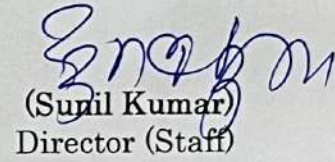 (Sunil Kumar)
Director (Staff)